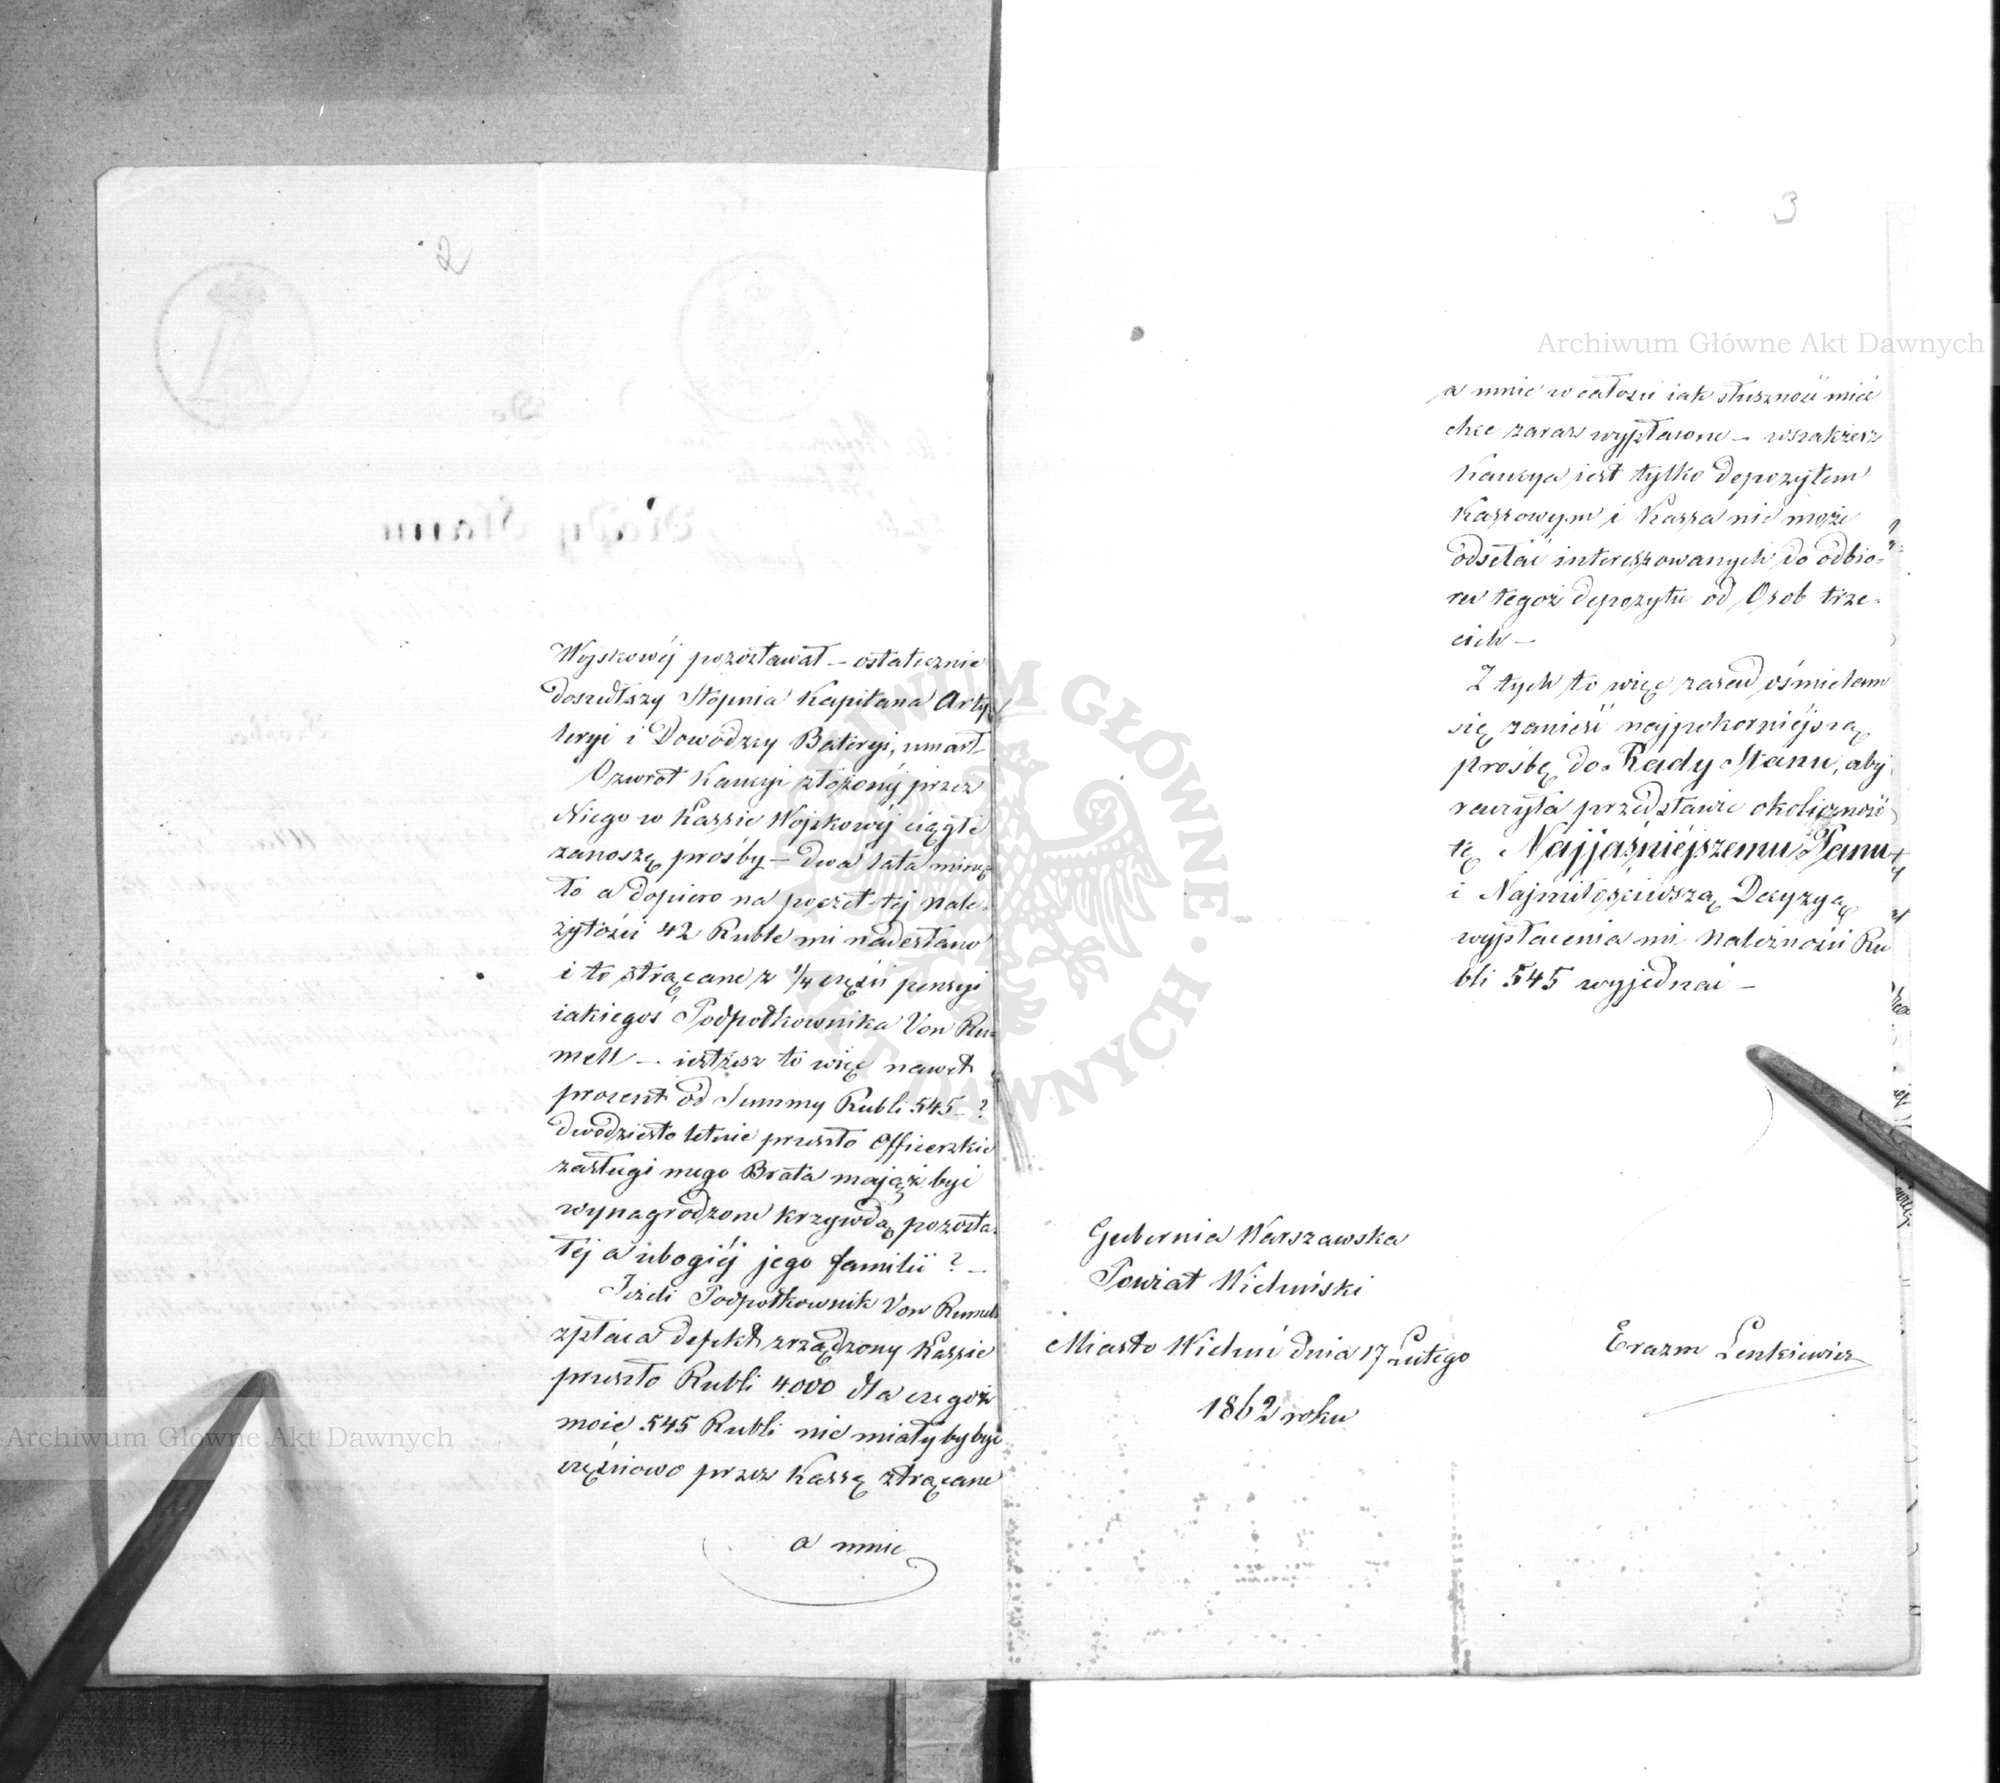 2
Wojskowéj pozostawał – ostatecznie
doszedłszy Stopnia Kapitana Arty
leryi i Dowódzcy Bateryi, umarł
O zwrot Kaucyi złożonéj przez
Niego w Kassie Wojskowéj ciągłe
zanoszę prośby – dwa lata minę
ło a dopiero na poczet téj nale-
żytości 42 Ruble mi nadesłano
i to strącane z 1/4 części pensyi
iakiegoś Podpółkownika Von Ru-
mell – iestżesz to więc nawet
procent od Summy Rubli 545 – ?
dwódziesto letnie przeszło Officerskie
zasługi mego Brata mająż być
wynagrodzone krzywdą pozosta-
łéj a ubogiéj jego familii ? –
Jeżeli Podpółkownik Von Rumell
spłaca defekt zrządzony Kassie
przeszło Rubli 4000 dla czegoż
moie 545 Rubli nie miałyby być
częściowo przez Kassę strącane
a mnie
3
a mnie w całości iak słuszność mieć
chce zaraz wypłacone – wszakżesz
Kaucya iest tylko depozytem
Kassowym i Kassa nie może
odsełać interessowanych do odbio-
ru tegoż depozytu od Osob trze-
cich –
Z tych to więc zasad ośmielam
się zanieść najpokorniéjszą
prośbę do Rady Stanu, aby
raczyła przedstawić okoliczność
tę Najjaśniéjszemu Panu
i Najmiłościwszą Decyzyą
wypłacenia mi należności Ru
bli 545 wyjednać –
Gubernia Warszawska
Powiat Wieluński
Miasto Wieluń dnia 17 Lutego
1862 roku
Erazm Lenkiewicz
Archiwum Główne Akt Dawnych
Archiwum Główne Akt Dawnych
ARCHIWUM GŁÓWNE AKT DAWNYCH